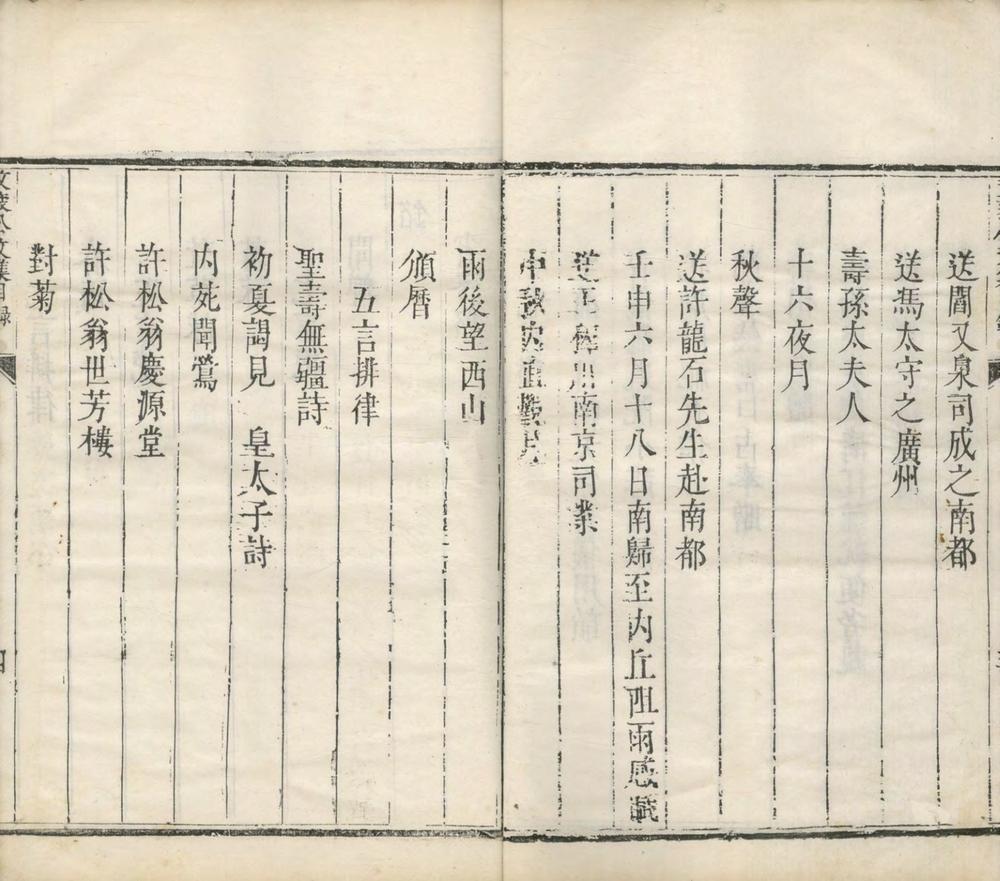 送閻又泉司成之南都
送馮太守之廣州
壽孫太夫人
十六夜月
秋聲
送許龍石先生赴南都
壬申六月十八日南歸至内丘阻雨感諴
送王 南京司業
中秋
雨後望西山
頒曆
五言排律
聖壽無疆詩
初夏謁見 皇太子詩
内苑聞鶯
許松翁慶源堂
許松翁世芳樓
對菊
公文集目録
四